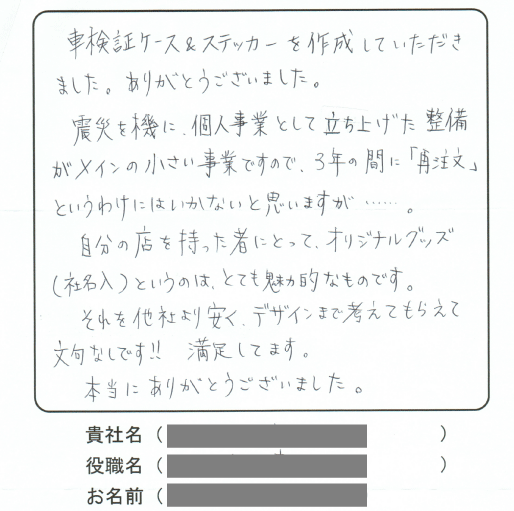 車検証ケース&ステッカーを作成していただき
ました。ありがとうございました。
震災を機に、個人事業として立ち上げた整備
がメインの小さい事業ですので、3年の間に「再注文」
というわけにはいかないと思いますが……。
自分の店を持った者にとって、オリジナルグッズ
(社名入)というのは、とても魅力的なものです。
それを他社より安く、デザインまで考えてもらえて
文句なしです!! 満足してます。
本当にありがとうございました。
貴社名( )
役職名( )
お名前(